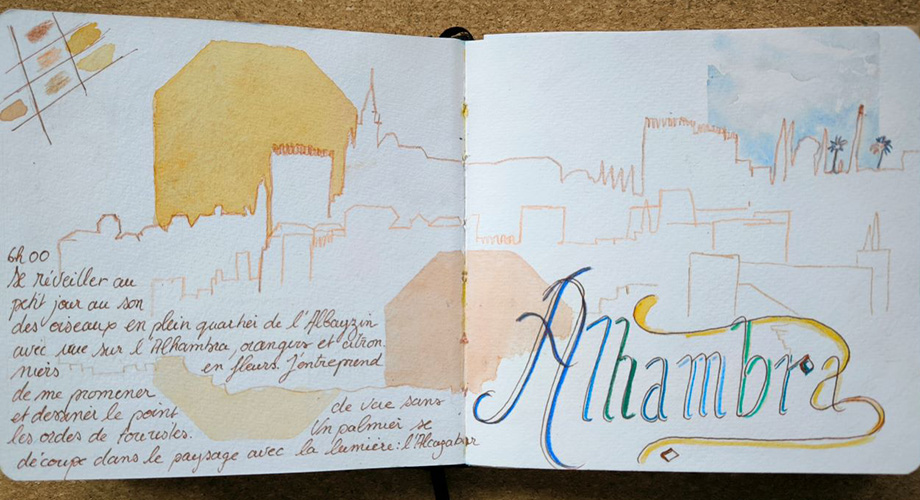 6h00
Se réveiller au
petit jour au son
des oiseaux en plein quartier de l'Albayzin
avec vue sur l'Alhambra, orangers et citron
niers en fleurs. J'entreprend
de me promener
et dessiner le point de vue sans
les ordes de touristes. Un palmier se
découpe dans le paysage avec la lumière: l'Alcazabar
Alhambra